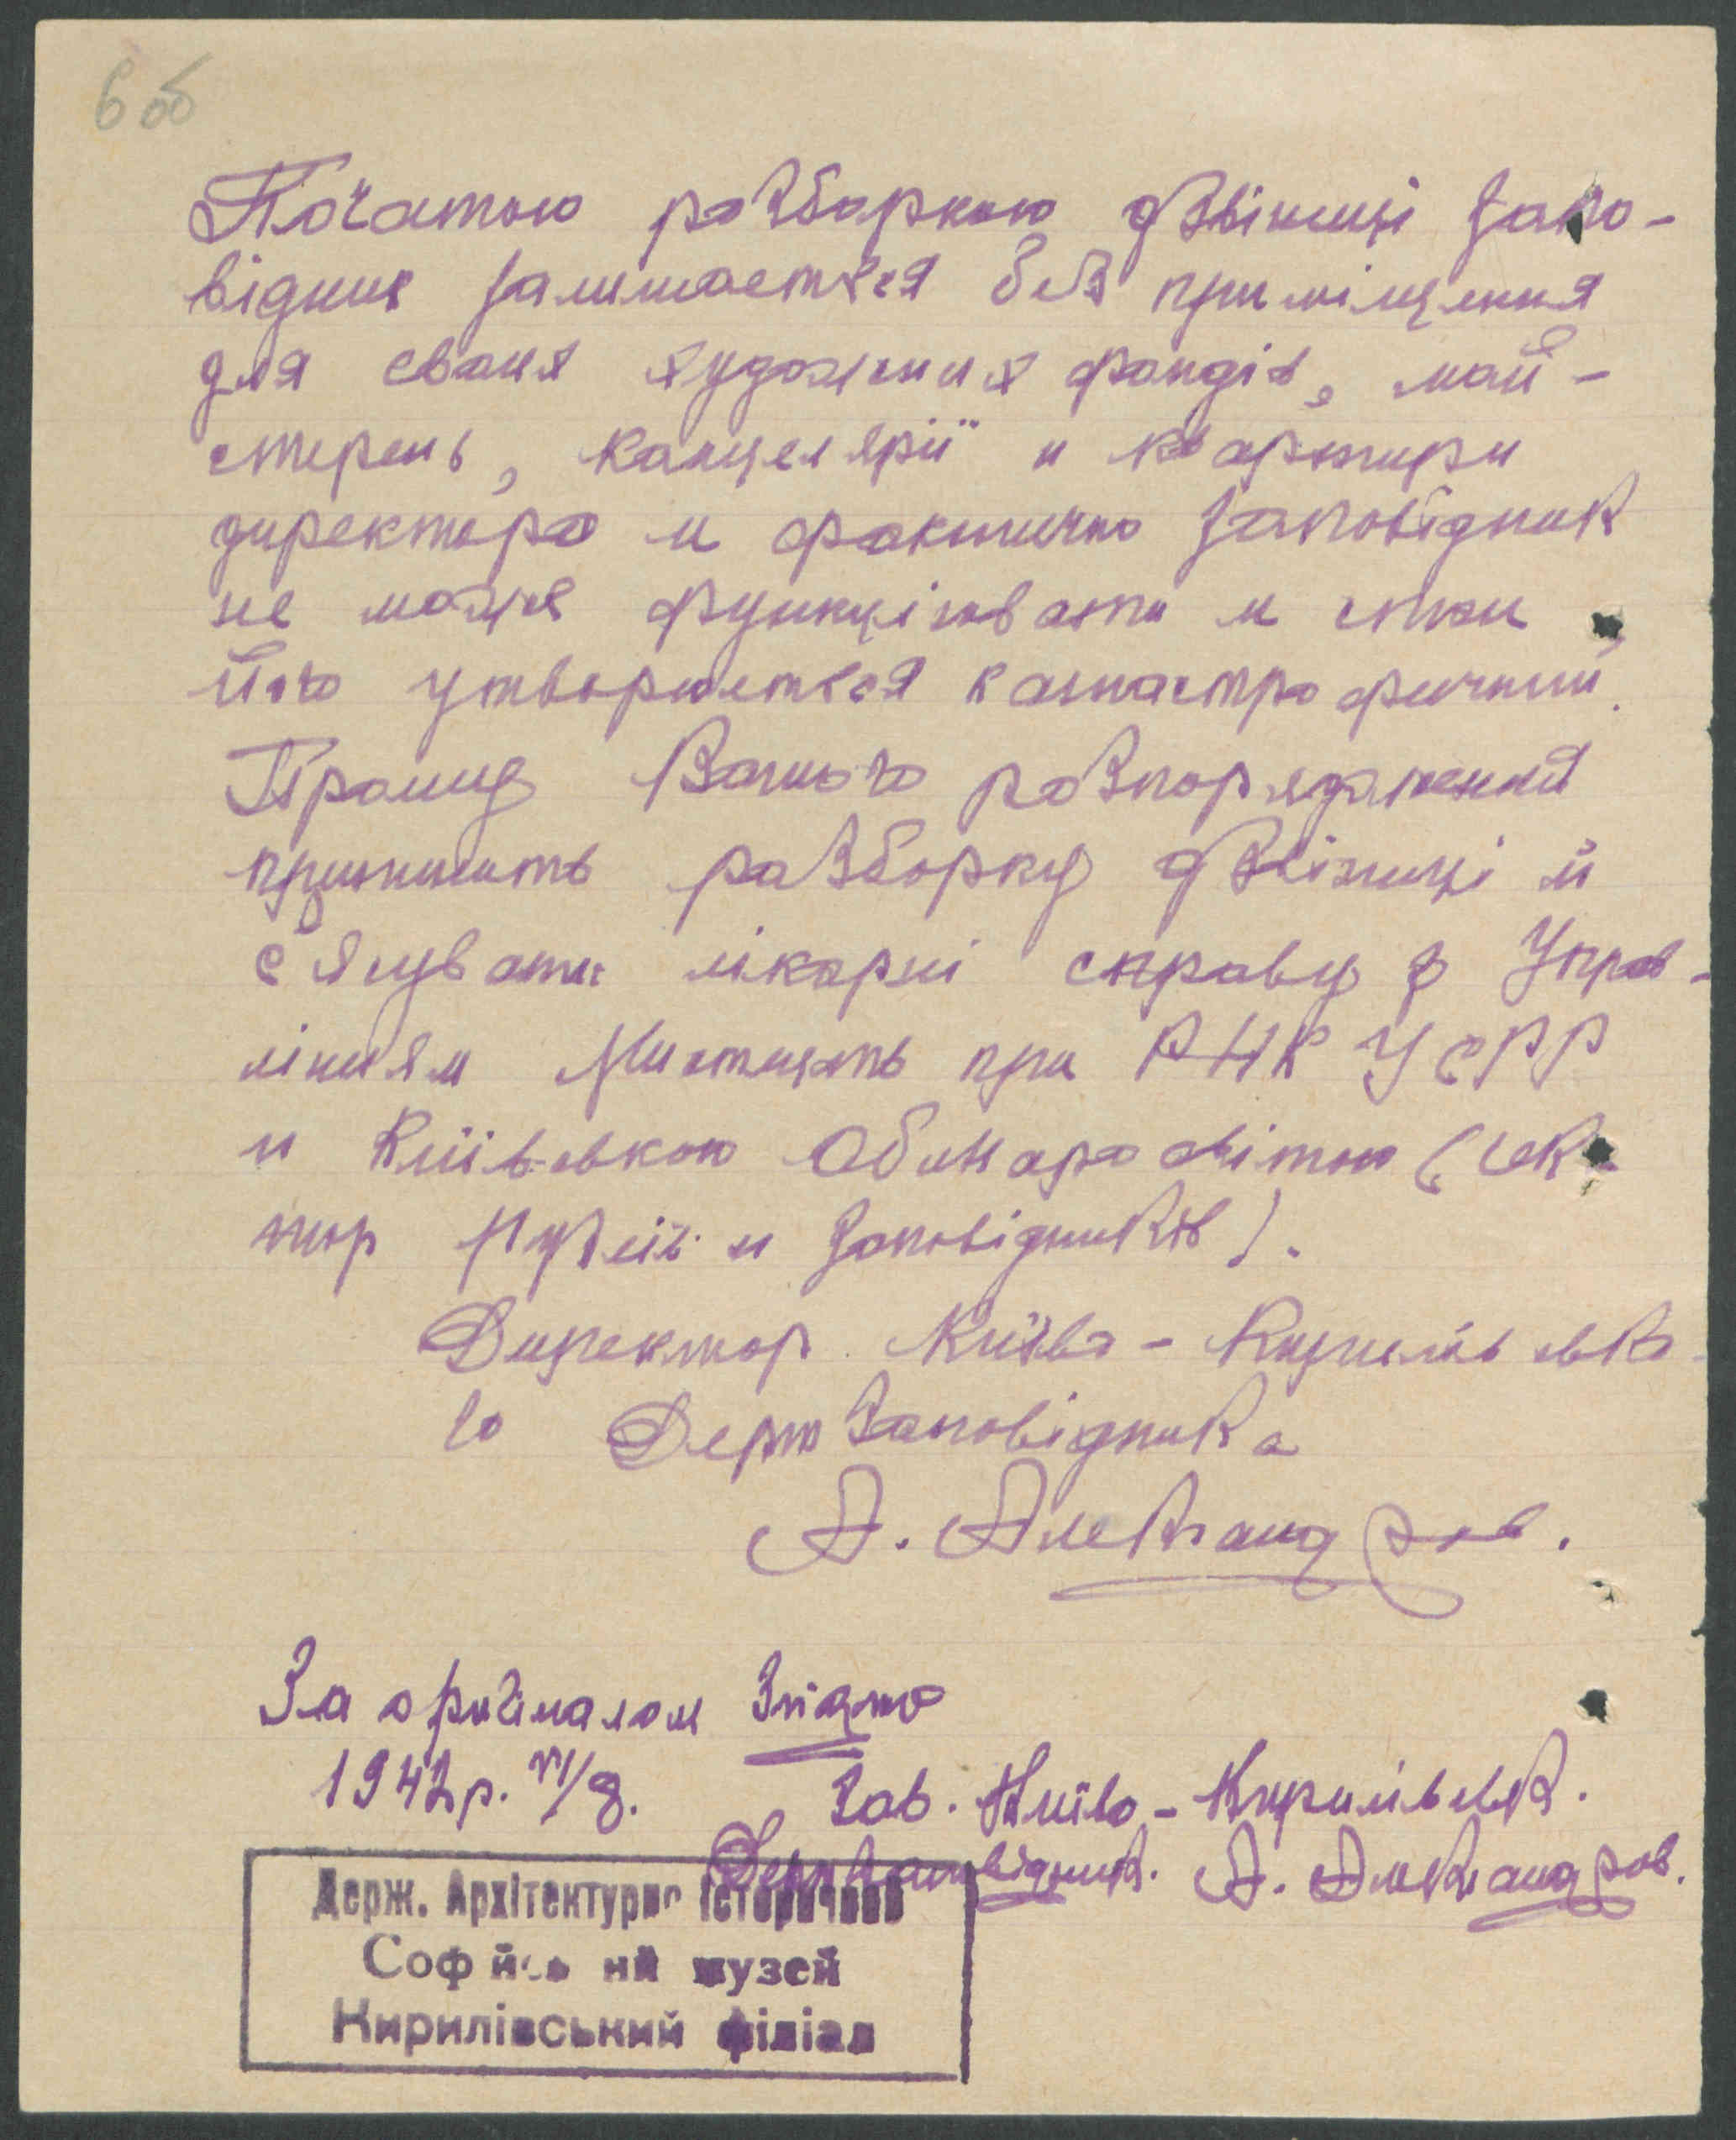 6 об
Початою разборкою дзвіниці запо-
відник залишаеться без приміщення
для своих художних фондів, май-
стерень, канцелярії и квартири
директора и фактично заповідник
не може функціювати и стан
його утворюеться катастрофичний.
Прошу Вашого разпорядження
припинить разборку дзвіниці й
с'ясувати лікарні справу з Управ-
лінням Мистецтв при РНК УСРР
и Київською Облнаросвітою (Сек-
тор Музеїв и Заповідників).
Директор Києво-Кирилівсько-
го Держзаповідника
А. Александров.
За оригіналом Згідно
1942 р. VI/8.
Зав. Києво-Кирилівськ.
Держзаповідник. А. Александров.
Держ. Архітектурно історичний
Софійський музей
Кирилівський філіал